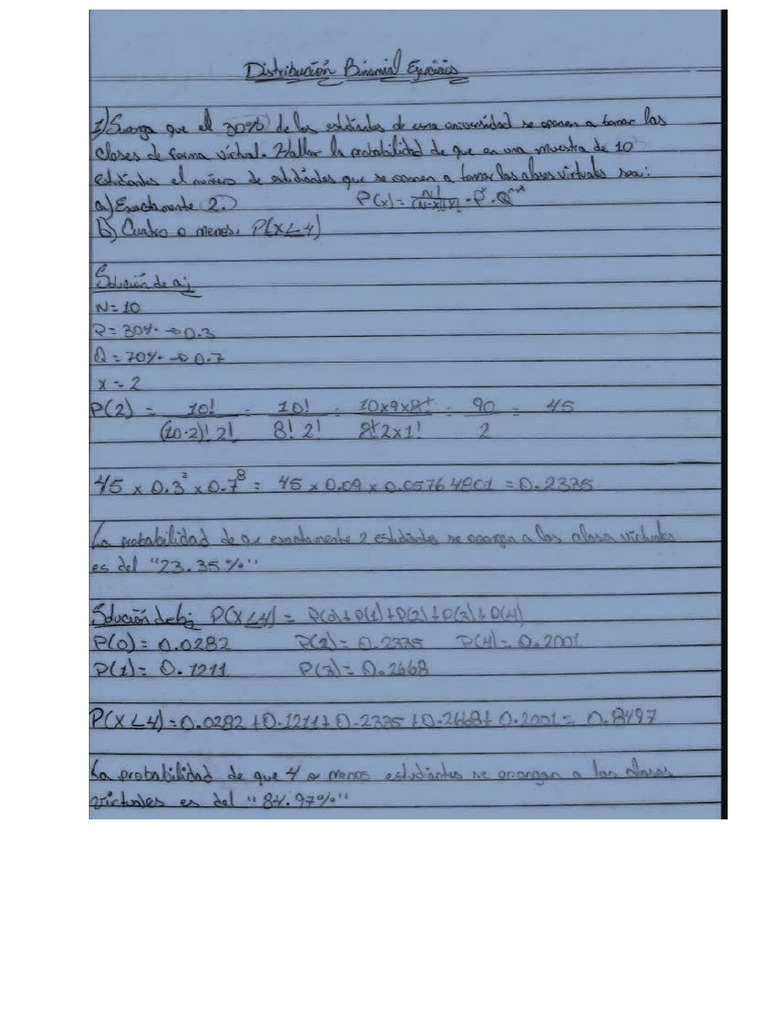 Distribución Binomial Ejercicios
1) Suponga que el 30% de los estudiantes de una universidad se oponen a tomar las
clases de forma virtual. Hallar la probabilidad de que en una muestra de 10
estudiantes el número de estudiantes que se oponen a tomar las clases virtuales sea:
a) Exactamente 2. P(x) = N! / (N-x)!x! · P^x · Q^n-x
b) Cuatro o menos. P(X<4)
Solución de a;
N=10
P=30% → 0.3
Q=70% → 0.7
x = 2
P(2) = 10! / (10-2)! 2! = 10! / 8! 2! = 10x9x8! / 8! 2x1! = 90 / 2 = 45
45 x 0.3² x 0.7⁸ = 45 x 0.09 x 0.05764801 = 0.2335
La probabilidad de que exactamente 2 estudiantes se opongan a las clases virtuales
es del "23.35%"
Solución de b; P(X<4) = P(0)+P(1)+P(2)+P(3)+P(4)
P(0) = 0.0282 P(2) = 0.2335 P(4) = 0.2001
P(1) = 0.1211 P(3) = 0.2668
P(X<4) = 0.0282 + 0.1211 + 0.2335 + 0.2668 + 0.2001 = 0.8497
La probabilidad de que 4 o menos estudiantes se opongan a las clases
virtuales es del "84.97%"